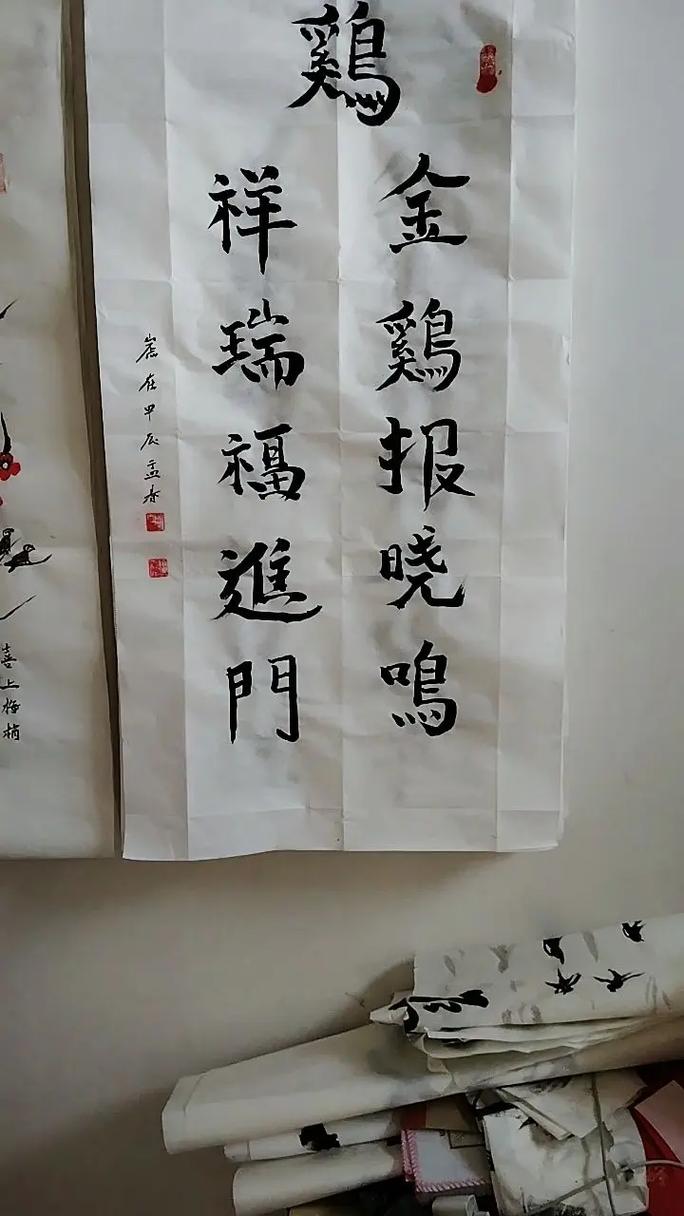 鷄
金鷄报晓鳴
祥瑞福進門
在甲辰孟春
喜上梅梢